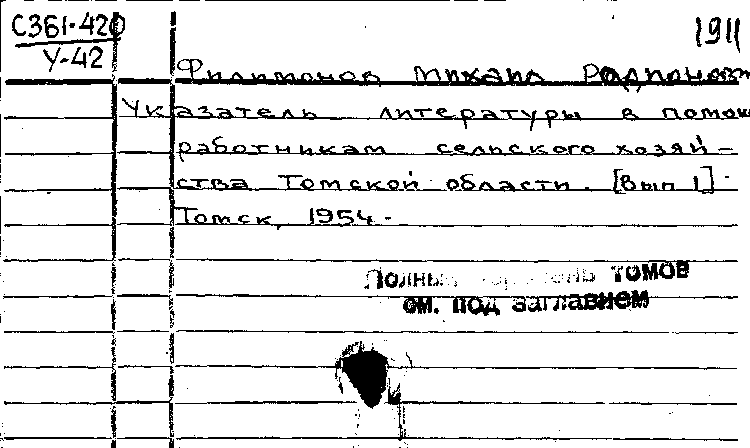 С361-420
У-42
1911
Филимонов Михаил Родионович
Указатель литературы в помощь
работникам сельского хозяй-
ства Томской области. [Вып 1]
Томск, 1954-
Полный перечень томов
см. под заглавием